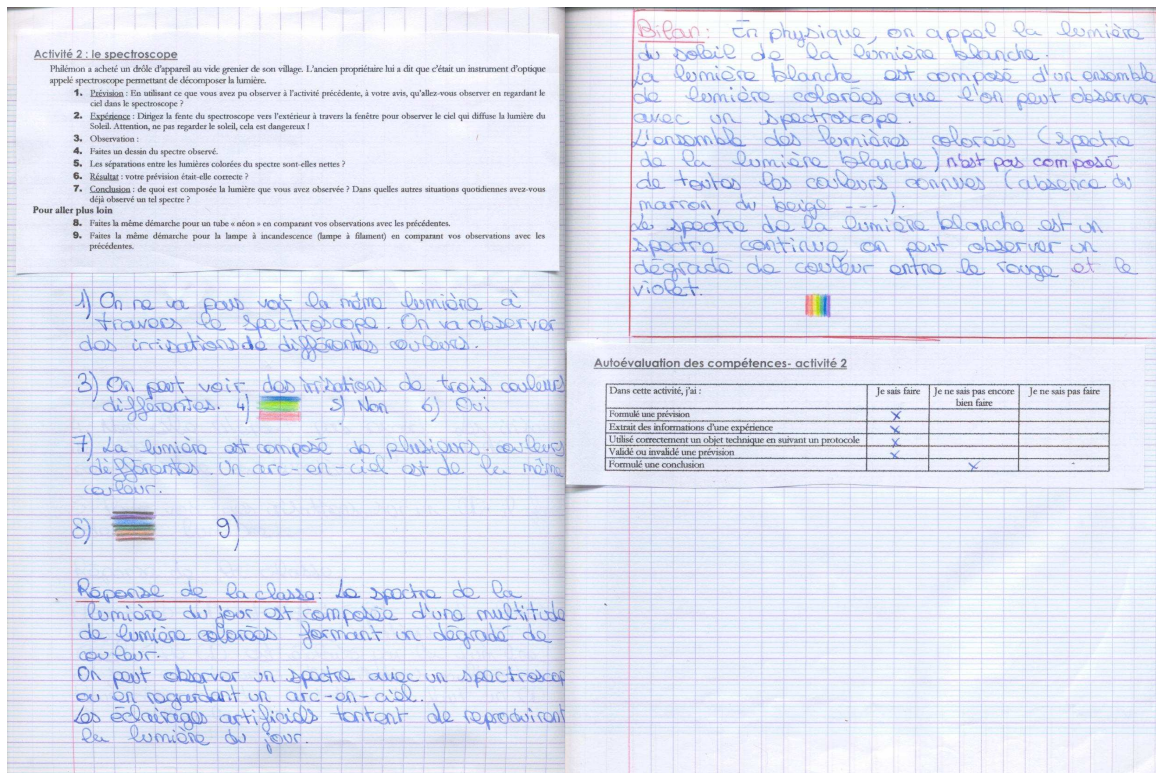 Activité 2 : le spectroscope
Philémon a acheté un drôle d'appareil au vide grenier de son village. L'ancien propriétaire lui a dit que c'était un instrument d'optique
appelé spectroscope permettant de décomposer la lumière.
1. Prévision : En utilisant ce que vous avez pu observer à l'activité précédente, à votre avis, qu'allez-vous observer en regardant le
ciel dans le spectroscope ?
2. Expérience : Dirigez la fente du spectroscope vers l'extérieur à travers la fenêtre pour observer le ciel qui diffuse la lumière du
Soleil. Attention, ne pas regarder le soleil, cela est dangereux !
3. Observation :
4. Faites un dessin du spectre observé.
5. Les séparations entre les lumières colorées du spectre sont-elles nettes ?
6. Résultat : votre prévision était-elle correcte ?
7. Conclusion : de quoi est composée la lumière que vous avez observée ? Dans quelles autres situations quotidiennes avez-vous
déjà observé un tel spectre ?
Pour aller plus loin
8. Faites la même démarche pour un tube « néon » en comparant vos observations avec les précédentes.
9. Faites la même démarche pour la lampe à incandescence (lampe à filament) en comparant vos observations avec les
précédentes.
1) On ne va pours voir la même lumière à
travers le spectroscope. On va observer
des irrisations de différentes couleurs.
3) On peut voir des irrisations de trois couleurs
différentes. 4) 5) Non 6) Oui
7) La lumière est composé de plusieurs couleurs
différentes. Un arc-en-ciel est de la même
couleur.
8) 9)
Réponse de la classe : Le spectre de la
lumière du jour est composée d'une multitude
de lumière colorées formant un dégradé de
couleur.
On peut observer un spectre avec un spectroscop
ou en regardant un arc-en-ciel.
Les éclairages artificiels tentent de reproduirent
la lumière du jour.
Bilan : En physique, on appel la lumière
du soleil de la lumière blanche.
La lumière blanche est composé d'un ensemble
de lumière colorées que l'on peut observer
avec un spectroscope.
L'ensemble des lumières colorées (spectre
de la lumière blanche) n'est pas composé
de toutes les couleurs connues (absence du
marron, du beige ---).
Le spectre de la lumière blanche est un
spectre continue, on peut observer un
dégradé de couleur entre le rouge et le
violet.
Autoévaluation des compétences- activité 2
Dans cette activité, j'ai : Je sais faire Je ne sais pas encore bien faire Je ne sais pas faire
Formulé une prévision X
Extrait des informations d'une expérience X
Utilisé correctement un objet technique en suivant un protocole X
Validé ou invalidé une prévision X
Formulé une conclusion X